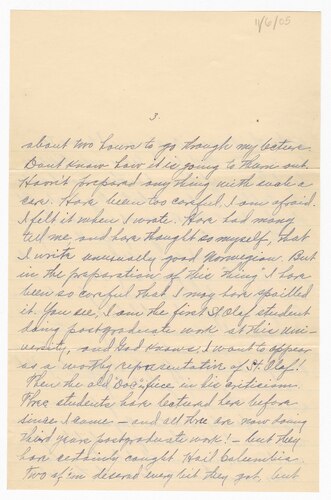 11/6/05
3
about two hours to go through my lecture.
Don't know how it is going to turn out.
Havn't prepared anything with such a
care. Have been too careful, I am afraid.
I felt it when I wrote. Have had many
tell me and have thought so myself, that
I write unusually good Norwegian. But
in the preparation of this "thing" I have
been so careful that I may have spoilled
it. You see, I am the first St Olaf student
doing postgraduate work at this uni-
versity, and God knows, I want to appear
as a worthy representative of St. Olaf!
Then the old Doc. is in his criticism.
Three students have lectured here before
since I came – and all three are now doing
third years postgraduate work! – but they
have certainly caught Hail Columbia.
Two of 'em deserved every bit they got, but